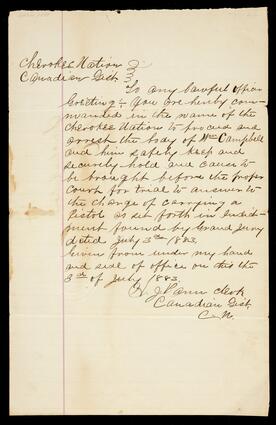 Cherokee Nation
Canadian Dist.
To any Lawful officer
Greeting: You are hereby com-
manded in the name of the
Cherokee Nation to proceed and
arrest the body of Wm Campbell
and him safely keep and
securely hold and cause to
be brought before the proper
Court for trial to answer to
the charge of carrying a
Pistol as set forth in indict-
ment found by Grand Jury
dated July 3rd 1883.
Given from under my hand
and seal of office on this the
3rd of July 1883.
Clerk
Canadian Dist.
C. N.